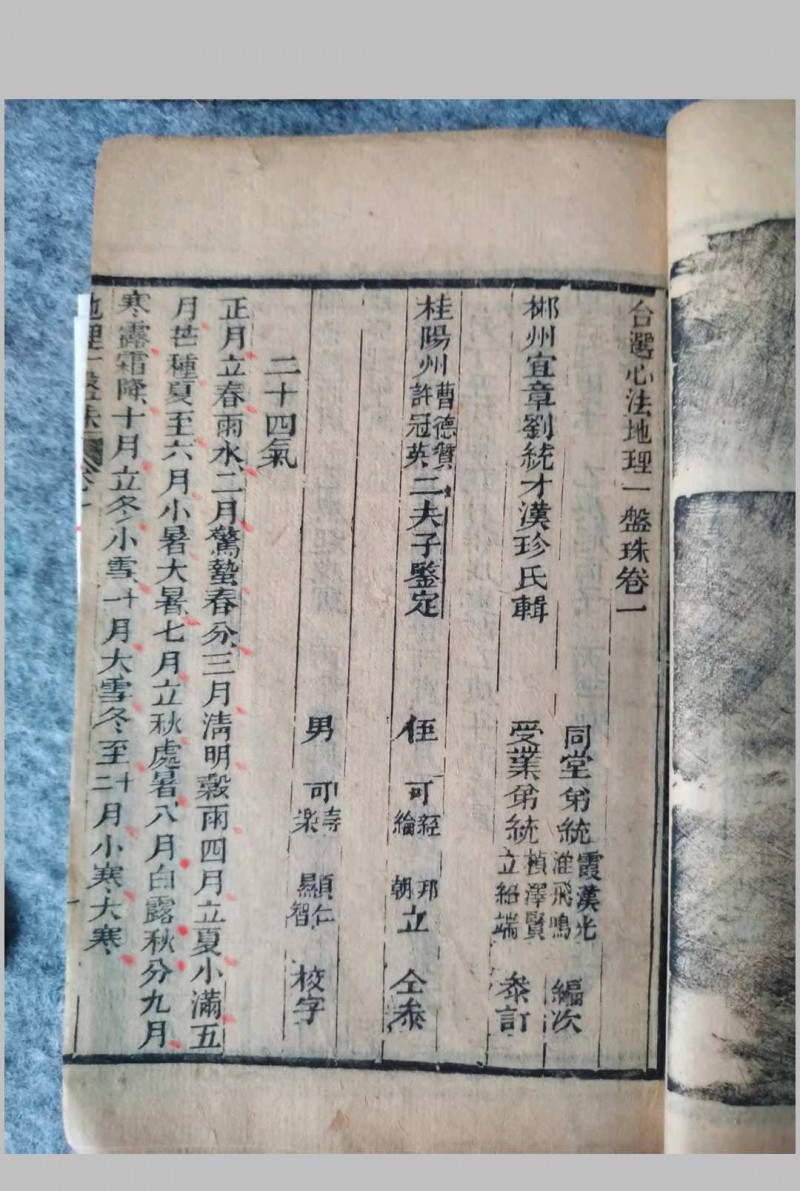 合選心法地理一盤珠卷一
同堂弟統霞漢光淮飛鳴編次
郴州宜章劉統才漢珍氏輯
受業弟統楨澤賢立紹端叅訂
桂陽州曹德贊許冠英二夫子鑒定
侄可經綸邦朝立仝叅
男可壽樂顯仁智校字
二十四氣
正月立春雨水二月驚蟄春分三月清明穀雨四月立夏小滿五
月芒種夏至六月小暑大暑七月立秋處暑八月白露秋分九月
寒露霜降十月立冬小雪十一月大雪冬至十二月小寒大寒
地理一盤珠 卷一